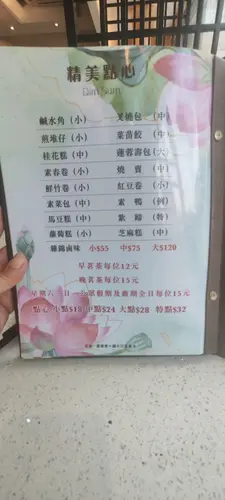 精美點心
Dim Sum
鹹水角（小） 叉燒包（中）
煎堆仔（小） 菜苗餃（中）
桂花糕（中） 蓮蓉壽包（大）
素春卷（小） 燒賣（中）
鮮竹卷（小） 紅豆卷（小）
素菜包（中） 素鴨（例）
馬豆糕（中） 紫（特）
蘿蔔糕（小） 芝麻糕（中）
雜錦鹵味 小$55 中$75 大$120
早茗茶每位12元
晚茗茶每位15元
星期六、日、公眾假期及齋期全日每位15元
點心 小點$18 中點$24 大點$28 特點$32